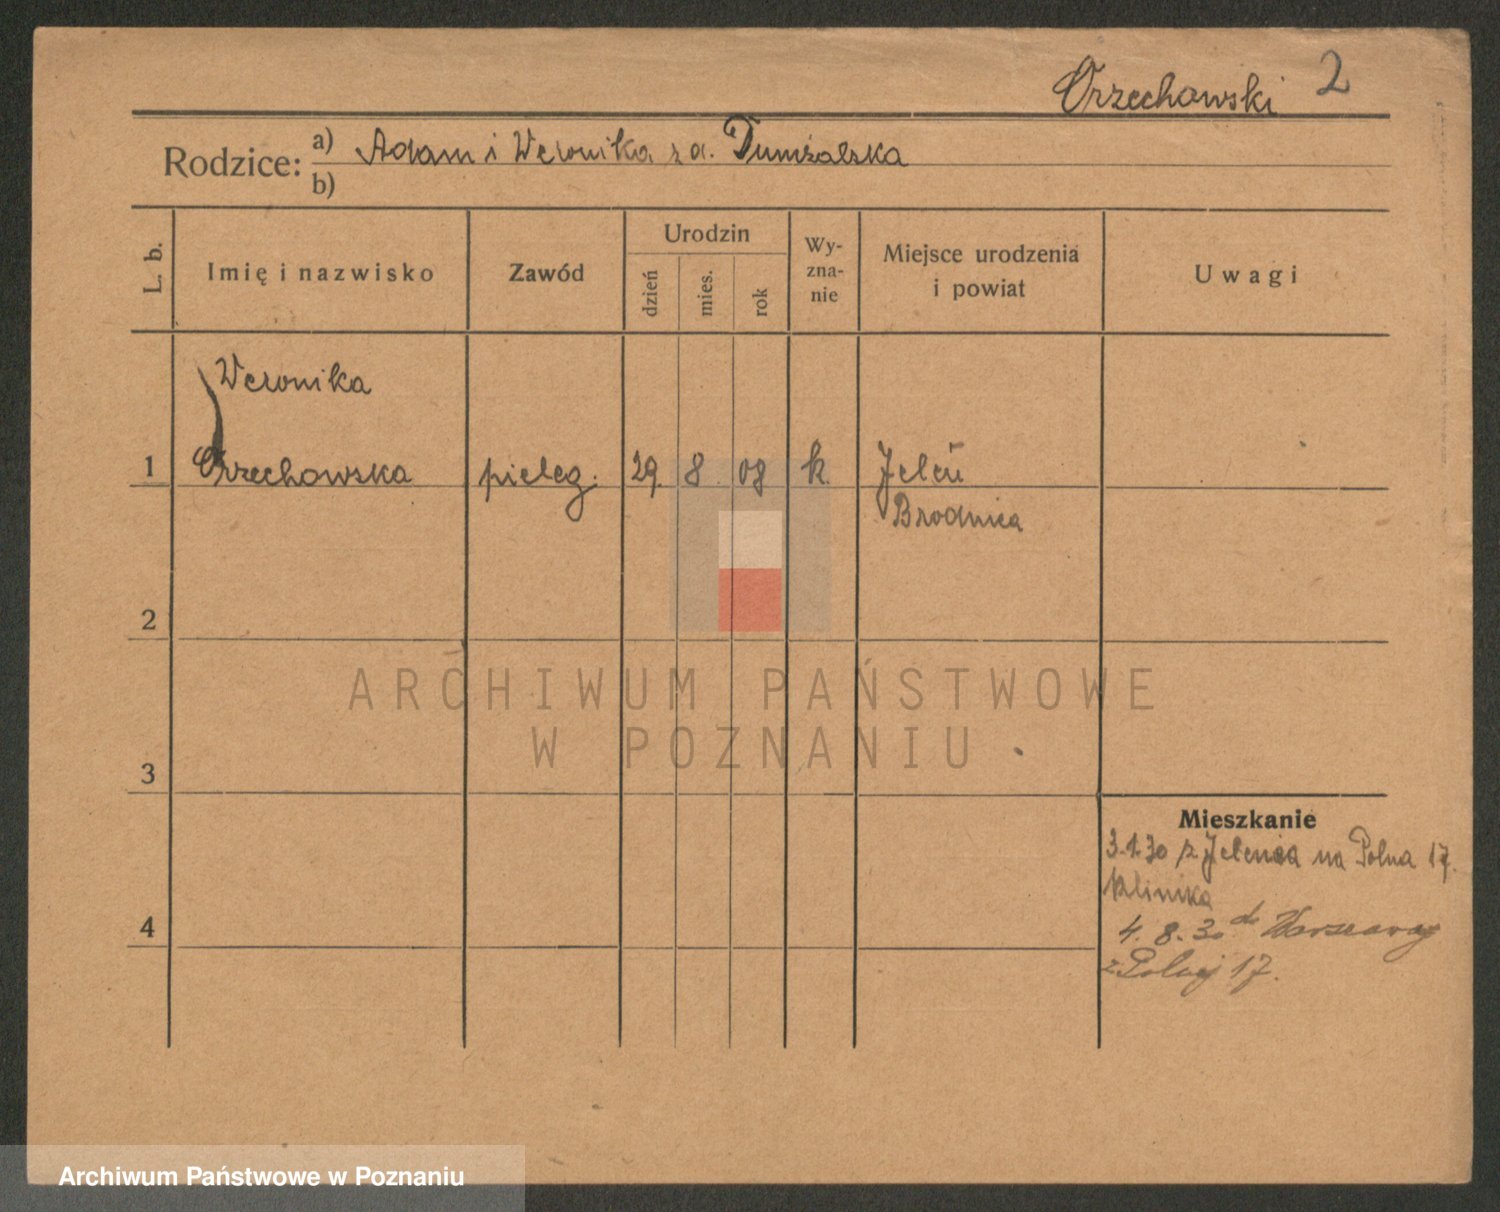 Orzechowski 2
Rodzice: a) Adam i Weronika z d. Dumżalska
b)
L. b. Imię i nazwisko Zawód Urodzin dzień mies. rok Wy-zna-nie Miejsce urodzenia i powiat Uwagi
Weronika
1 Orzechowska pieleg. 29. 8. 08 k. Jeleń
Brodnica
2
ARCHIWUM PAŃSTWOWE
W POZNANIU
3
Mieszkanie
3.1.30 z Jelenia na Polna 17.
Klinika
4
4. 8. 30 do Warszawy
z Polnej 17.
Archiwum Państwowe w Poznaniu